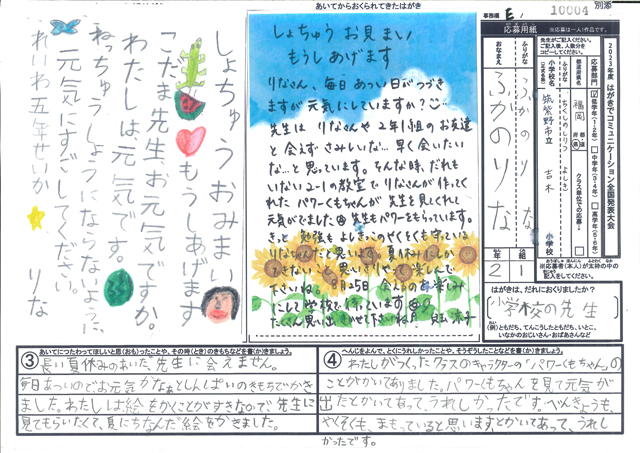 あいてからおくられてきたはがき
事務欄 E 10004 別添
しょちゅうおみまい
もうしあげます
こだま先生、お元気ですか。
わたしは、元気です。
ねっちゅうしょうにならないように、
元気にすごしてください。
れいわ五年せいか
りな
しょちゅうお見まい
もうしあげます
りなさん、毎日あつい日がつづき
ますが元気にしていますか?
先生は りなさんや2年1組のお友達
と会えずさみしいな…早く会いたい
な…と思っています。そんな時、だれも
いない2-1の教室で りなさんが作ってく
れた パワーくもちゃんが 先生を見てくれて
元気がでました 先生もパワーをもらっています。
きっと 勉強も よしきっこのやくそくも守っている
りなさんだと思います。夏休みにしか
できないこと、思いきりやって楽しんで
下さいね。8月25日 会えるのを楽しみ
にして学校で待っています
たくさん思い出きかせて下さいね!
応募用紙
※応募は一人1作品です。
2023年度 はがきでコミュニケーション全国発表大会
先生がご記入ください。
ご記入後、人数分を
コピーしてください。
応募部門
低学年(1・2年)
中学年(3・4年)
高学年(5・6年)
都道府県名
福岡
都 道 府 県
クラス単位での応募
小学校名
(正式名称)
ふりがな
ちくしのしりつ よしき
筑紫野市立 吉木 小学校
ふりがな
ふかの りな
おなまえ
ふかの りな
年 組
2 1
※応募者(本人)が太枠の中の
記入をしてください。
はがきは、だれにおくりましたか?
(小学校の先生)
(例)ともだち、てんこうしたともだち、いとこ、
いなかのおじいさん・おばあさんなど
③ あいてにつたわってほしいと思(おも)ったことや、その時(とき)のきもちなどを書(か)きましょう。
長い夏休みのあいだ、先生に会えません。
毎日あついのでお元気かなぁとしんぱいのきもちでかき
ました。わたしは絵をかくことがすきなので先生に
見てもらいたくて、夏にちなんだ絵をかきました。
④ へんじをよんで、とくにうれしかったことや、そうぞうしたことなどを書(か)きましょう。
わたしがつくったクラスのキャラクターの「パワーくもちゃん」の
ことがかいてありました。パワーくもちゃんを見て元気が
出たとかいてあって、うれしかったです。べんきょうも、
やくそくも、まもっていると思いますとかいてあって、うれし
かったです。